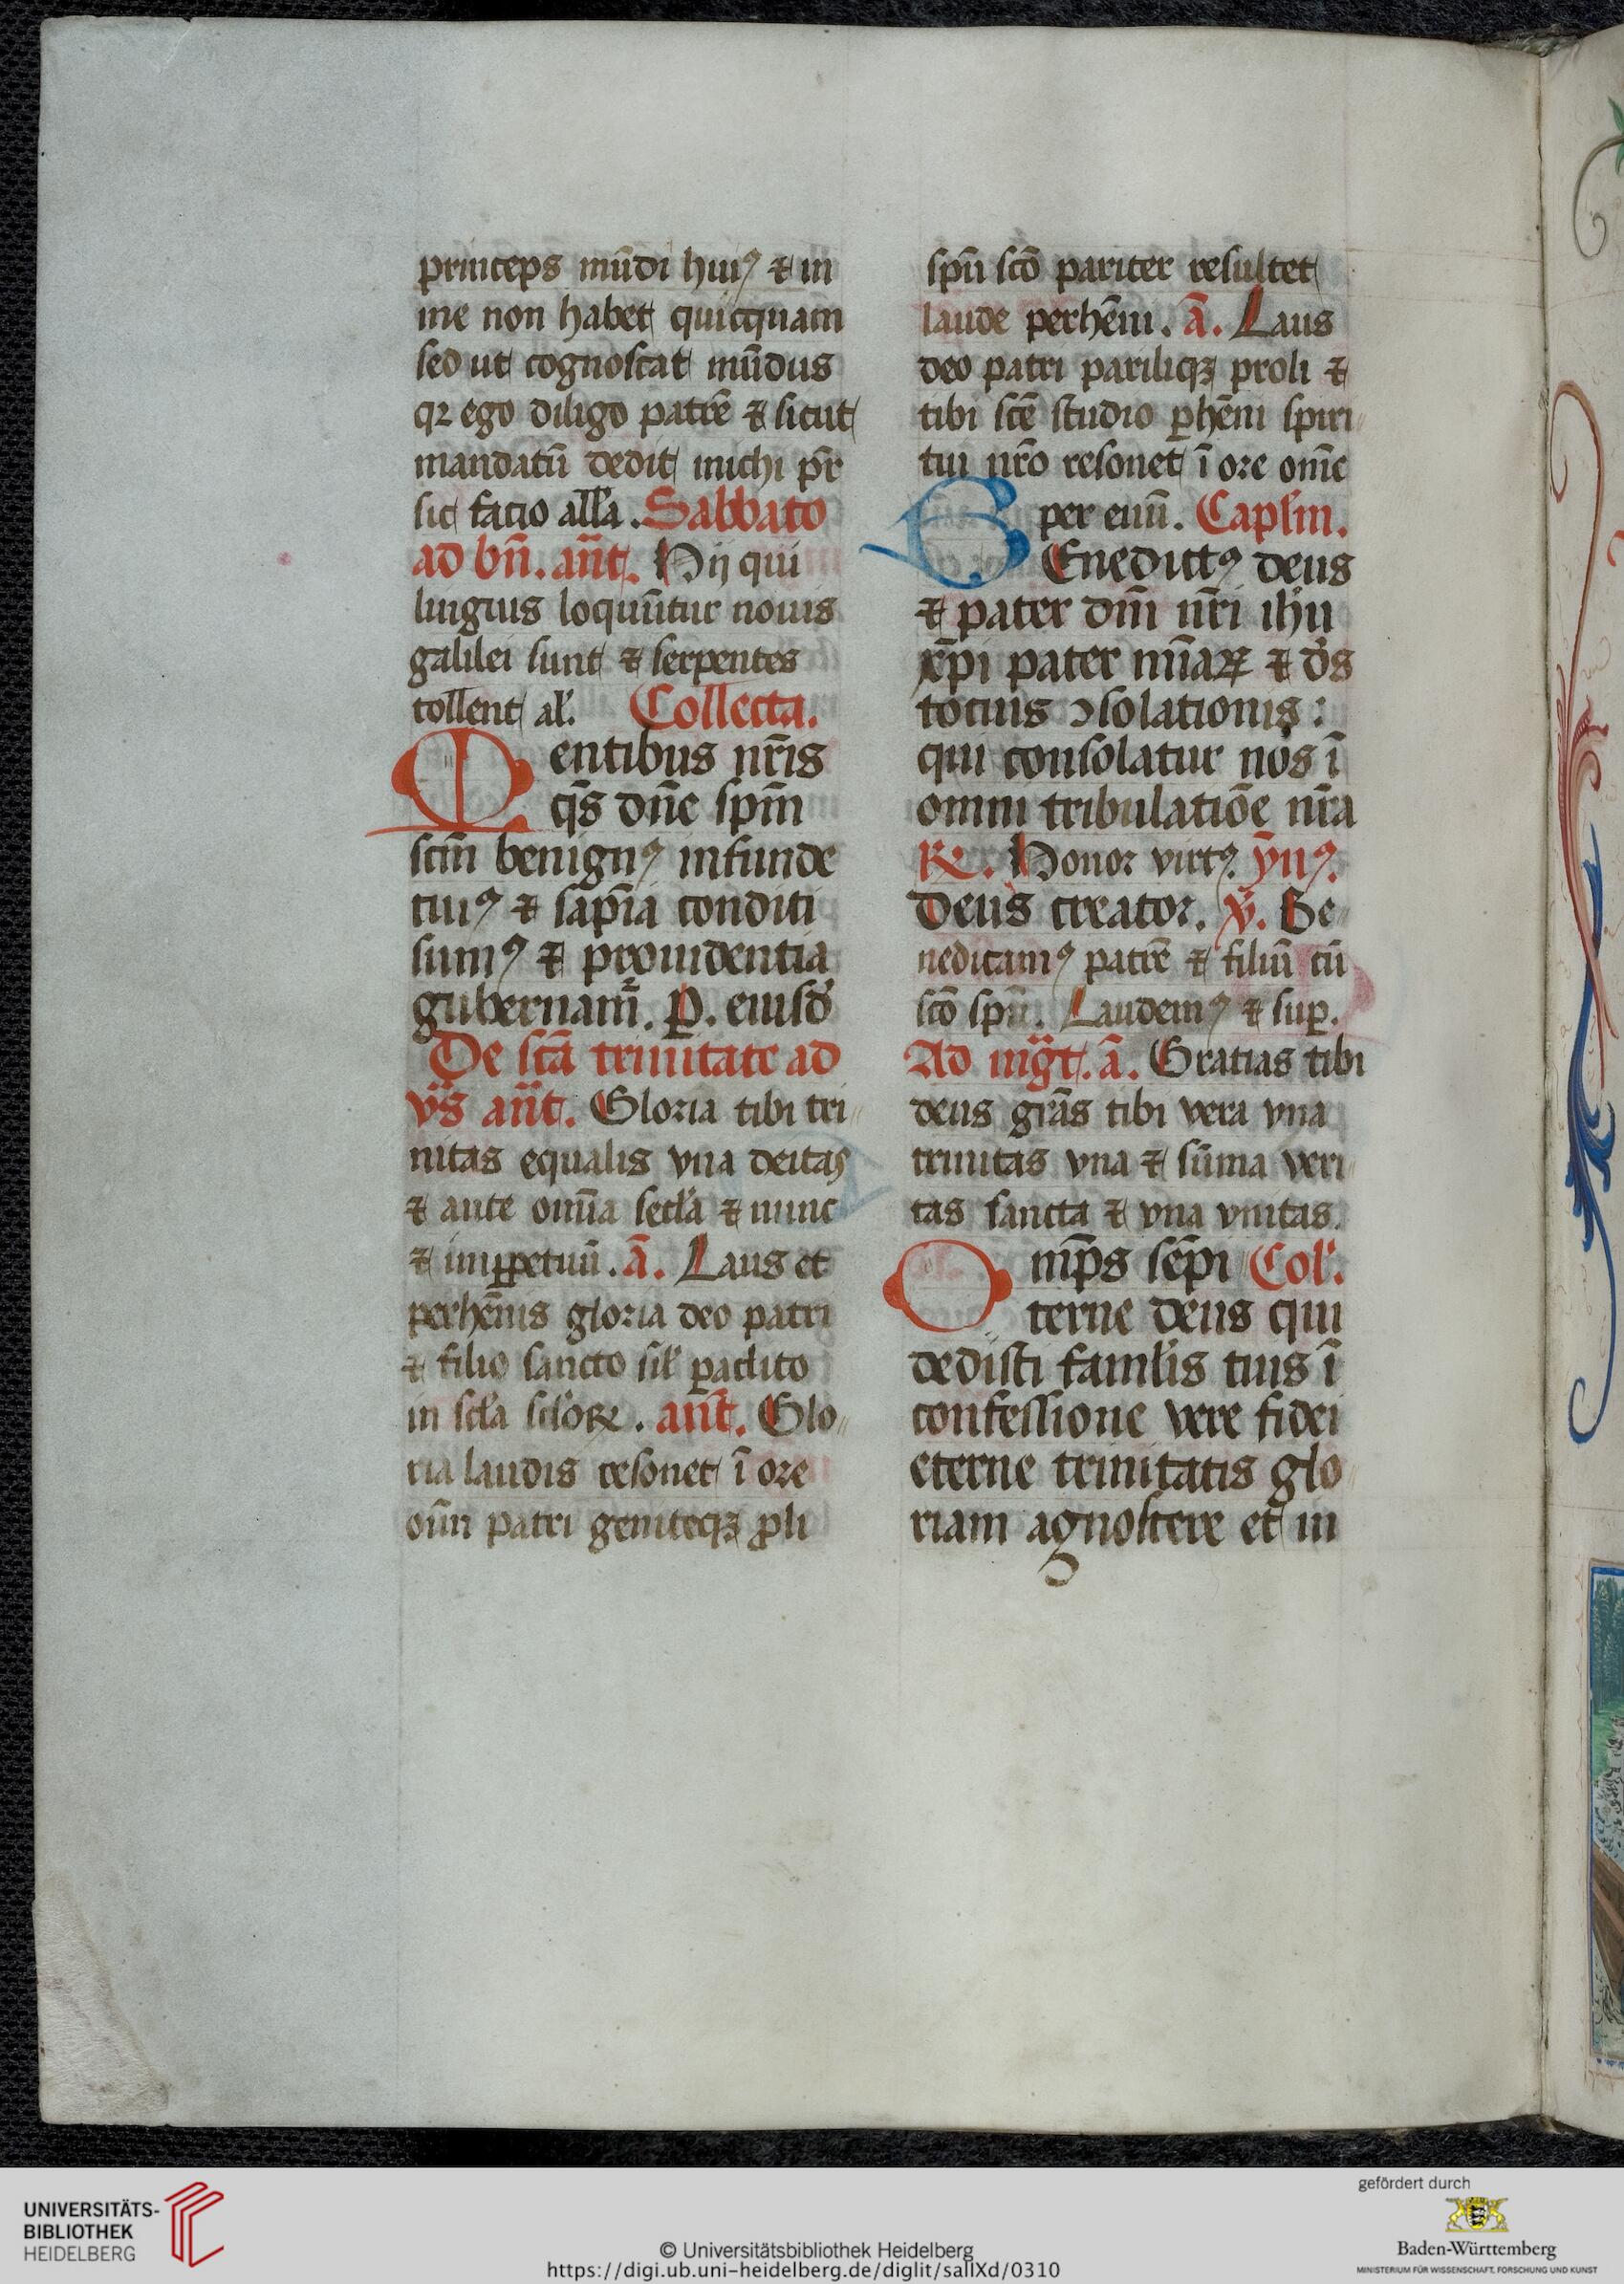 princeps mūdi huiꝰ ⁊ in
me non habet quicquam
sed ut cognoscat mūdus
qꝛ ego diligo patrē ⁊ sicut
mandatū dedit michi pr̄
sic facio alla̅. Sabbato
ad bn̄. an̄t. Hij qui
linguis loquūtur nouis
galilei sunt ⁊ serpentes
tollent al'. Collecta.
Mentibus nr̄is
qs̄ dn̄e spm̄
scm̄ benignꝰ infunde
cuiꝰ ⁊ sapīa conditi
sumꝰ ⁊ prouidentia
gubernam̄. P. eiusd'
De scā trinitate ad
vs̄ an̄t. Gloria tibi tri
nitas equalis vna deitas
⁊ ante om̄ia secl'a ⁊ nunc
⁊ imꝑpetuū. ā. Laus et
perhēnis gloria deo patri
⁊ filio sancto sil' ꝑaclito
in scl'a scl'oꝝ. an̄t. Glo
ria laudis resonet ī ore
oīm patri geniteqꝫ ꝓli
spū scō pariter resultet
laude perhēni. ā. Laus
deo patri pariliqꝫ proli ⁊
tibi scē studio ꝑhēni spiri
tui nr̄o resonet ī ore om̄e
per euū. Caplm̄.
BEnedictꝰ deus
⁊ pater dm̄ nr̄i ihu̅
xp̄i pater mīaꝝ ⁊ d's
tocius ꝯsolationis:
qui consolatur nos ī
omni tribulatiōe nr̄a
R. Honor virtꝰ. ymꝰ.
Deus creator. v. Be
nedicamꝰ patrē ⁊ filiū cū
scō spū. Laudemꝰ ⁊ suꝑ.
Ad mgt̄. ā. Gratias tibi
deus grās tibi vera vna
trinitas vna ⁊ sūma veri
tas sancta ⁊ vna vnitas.
Omp̄s sēpi Col'.
terne deus qui
dedisti faml'is tuis ī
confessione vere fidei
eterne trinitatis glo
riam agnoscere et in
UNIVERSITÄTS-
BIBLIOTHEK
HEIDELBERG
© Universitätsbibliothek Heidelberg
https://digi.ub.uni-heidelberg.de/diglit/sallXd/0310
gefördert durch
Baden-Württemberg
MINISTERIUM FÜR WISSENSCHAFT, FORSCHUNG UND KUNST